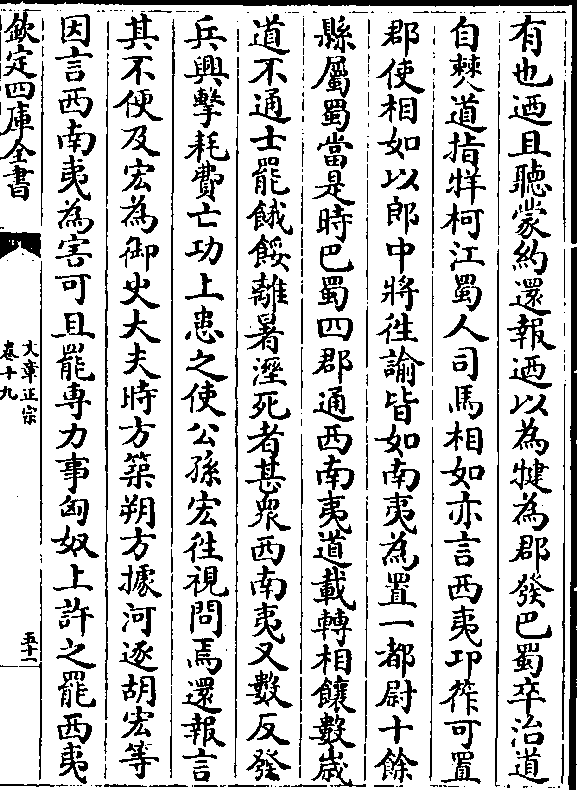 有也迺且聽蒙約還報迺以為犍為郡發巴蜀卒治道
自僰道指牂柯江蜀人司馬相如亦言西夷邛筰可置
郡使相如以郎中將徃諭皆如南夷為置一都尉十餘
縣屬蜀當是時巴蜀四郡通西南夷道載轉相饟數歲
道不通士罷餓餧離暑溼死者甚衆西南夷又數反發
兵興擊耗費亡功上患之使公孫宏徃視問焉還報言
其不便及宏為御史大夫時方築朔方據河逐胡宏等
因言西南夷為害可且罷専力事匈奴上許之罷西夷
欽定四庫全書
文章正宗
卷十九
五十一